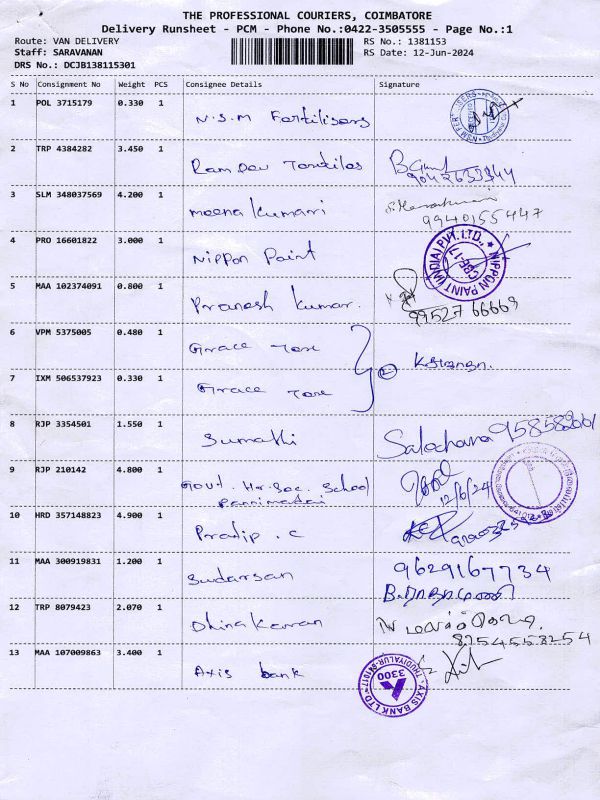 THE PROFESSIONAL COURIERS, COIMBATORE
Delivery Runsheet - PCM - Phone No.:0422-3505555 - Page No.:1
Route: VAN DELIVERY RS No.: 1381153
Staff: SARAVANAN RS Date: 12-Jun-2024
DRS No.: DCJB138115301
S No Consignment No Weight PCS Consignee Details Signature
1 POL 3715179 0.330 1 N.S.M Fertilisers
2 TRP 4384282 3.450 1 Ram Dev Textiles
3 SLM 348037569 4.200 1 meena kumari
99401 55447
4 PRO 16601822 3.000 1 Nippon Paint
NIPPON PAINT (INDIA) PVT. LTD., CBE-17
5 MAA 102374091 0.800 1 Pranesh kumar.
99527 66669
6 VPM 5375005 0.480 1 Grace
7 IXM 506537923 0.330 1 Grace
8 RJP 3354501 1.550 1 Sumathi Salochana
9 RJP 210142 4.800 1 Govt. Hr. Sec. School
Pannimadai
12/6/24
10 HRD 357148823 4.900 1 Pradip . C
11 MAA 300919831 1.200 1 Sudarsan 9629167734
12 TRP 8079423 2.070 1 Dhinakaran
8254558254
13 MAA 107009863 3.400 1 Axis bank
AXIS BANK LTD. THUDIYALUR-641017 3300